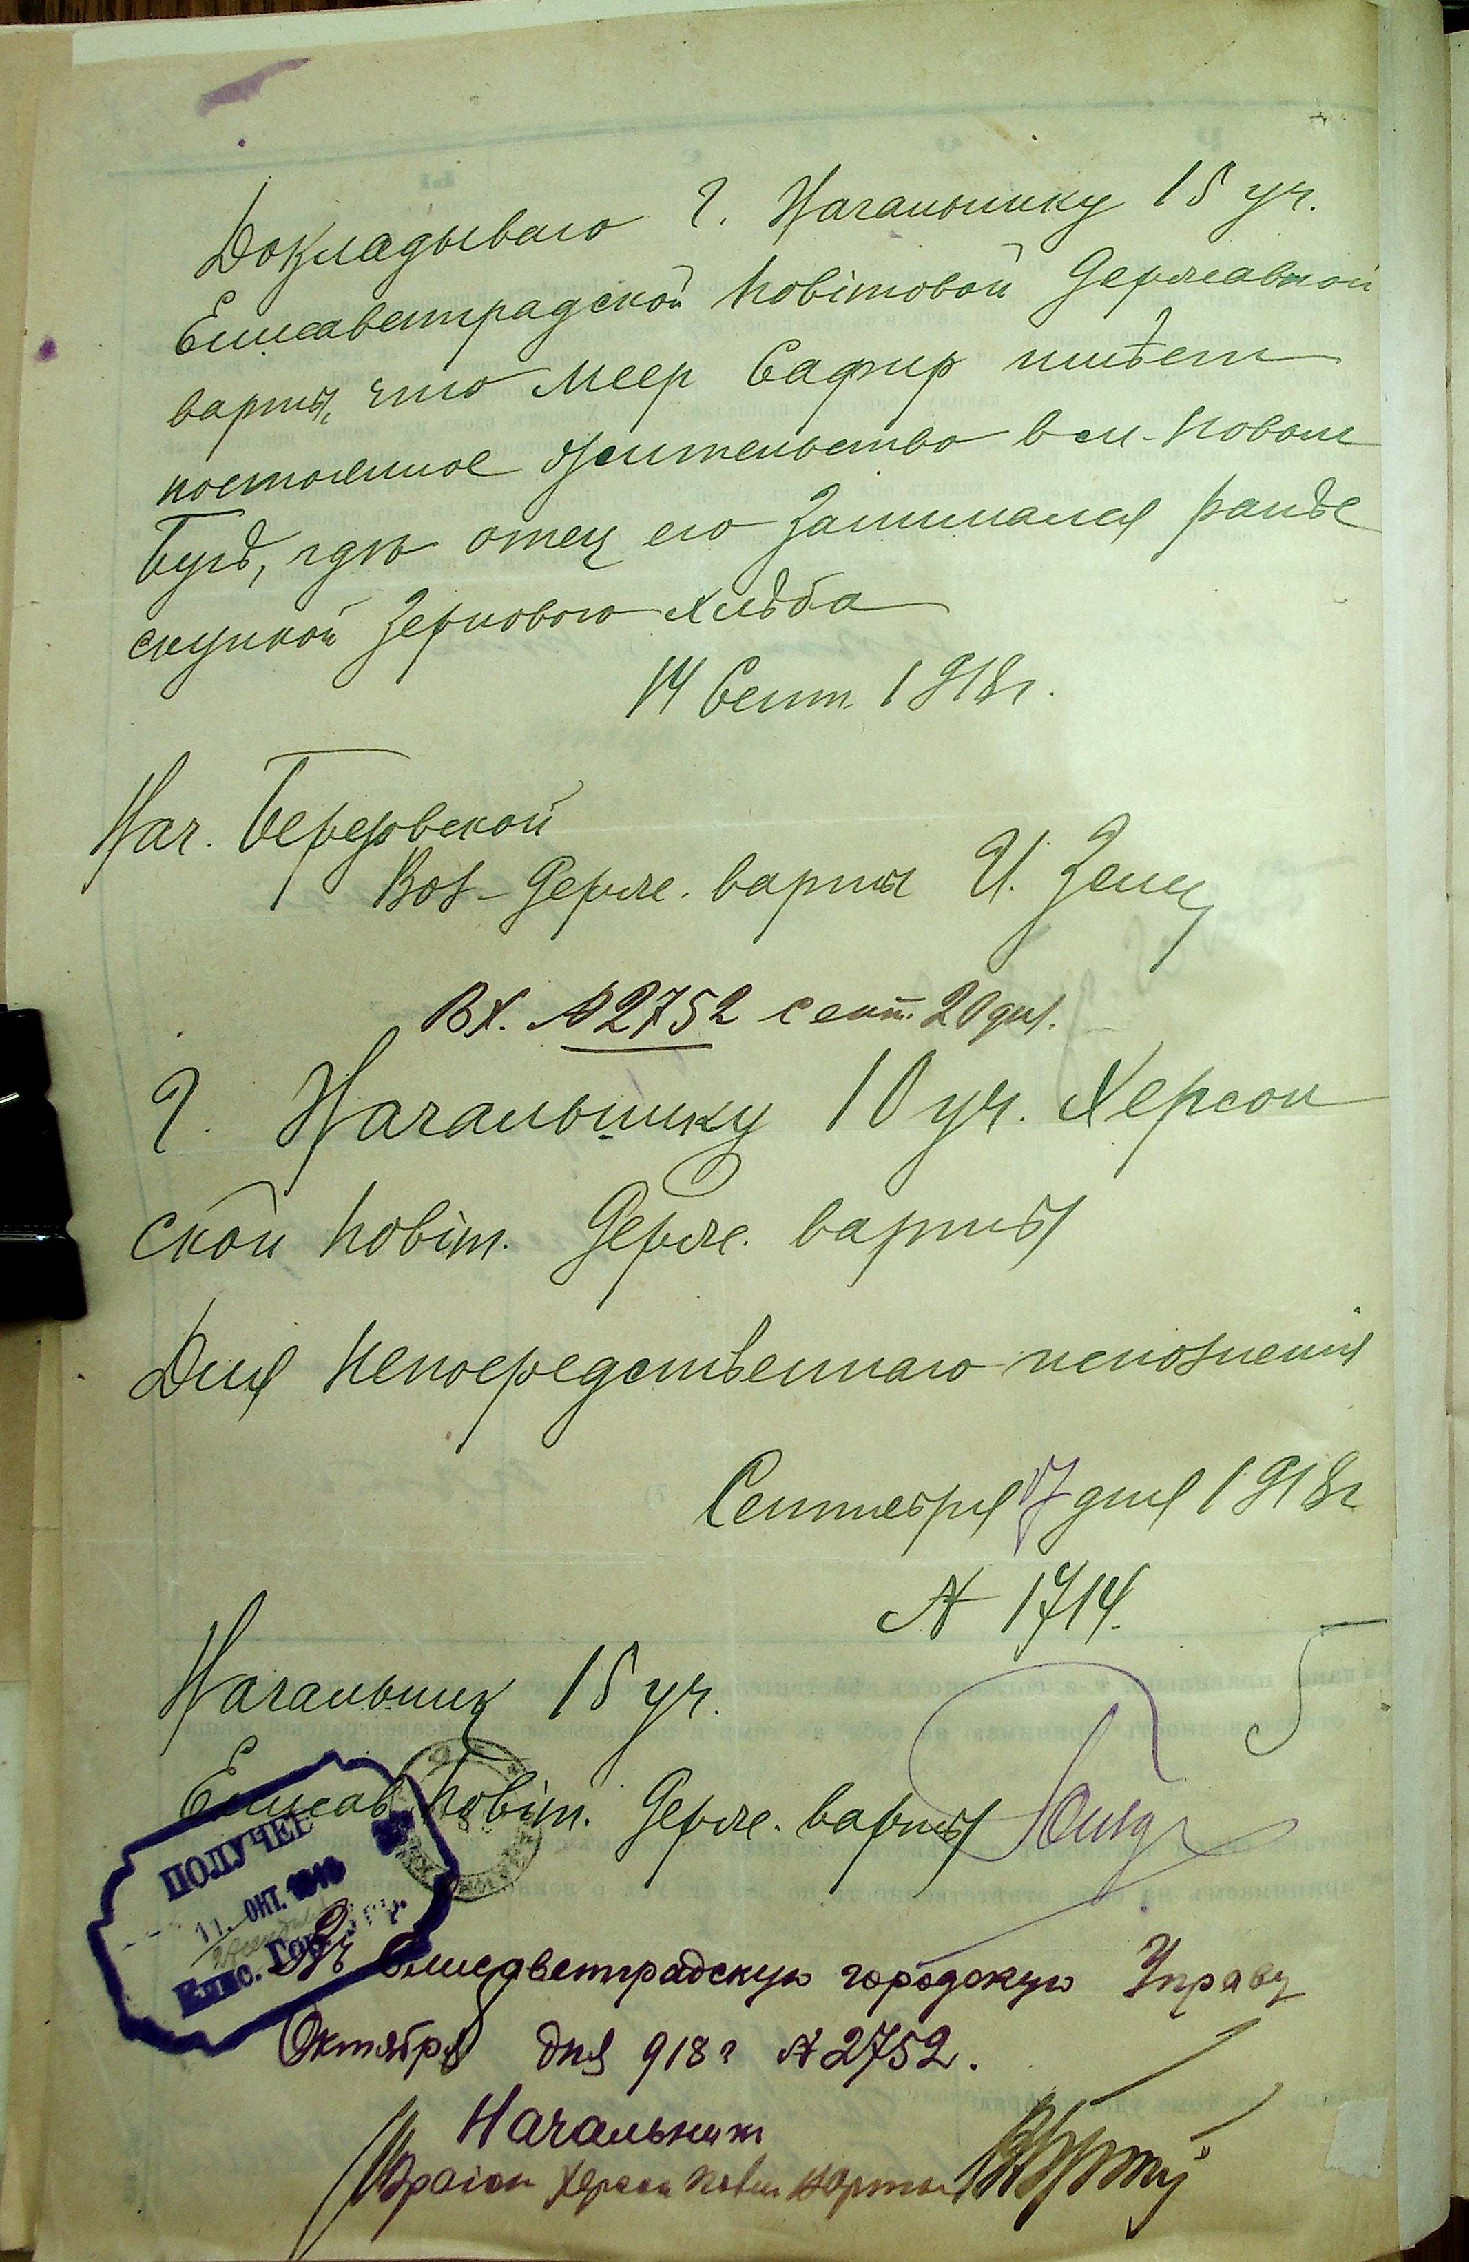 Докладываю Г. Начальнику 15 уч.
Елисаветградской Повітовой Державной
варты, что Меер Сафир имѣет
постоянное жительство в м. Новом
Бугѣ, гдѣ отец его занимался ранѣе
скупкой зернового хлѣба
14 Сент. 1918 г.
Нач. Березовской
Вол. Держ. варты И. Заяц
Вх. № 2752 сент. 20 дня.
Г. Начальнику 10 уч. Херсон
ской Повіт. Держ. варты
Для непосредственнаго исполнения
Сентября 17 дня 1918 г
№ 1714.
Начальник 15 уч.
Елисав. Повіт. Держ. варты
ПОЛУЧЕН
11. ОКТ. 1918
Елис. Гор.
Въ Елисаветградскую городскую Управу
Октября дня 918 г № 2752.
Начальник
Херсон Повіт Варты